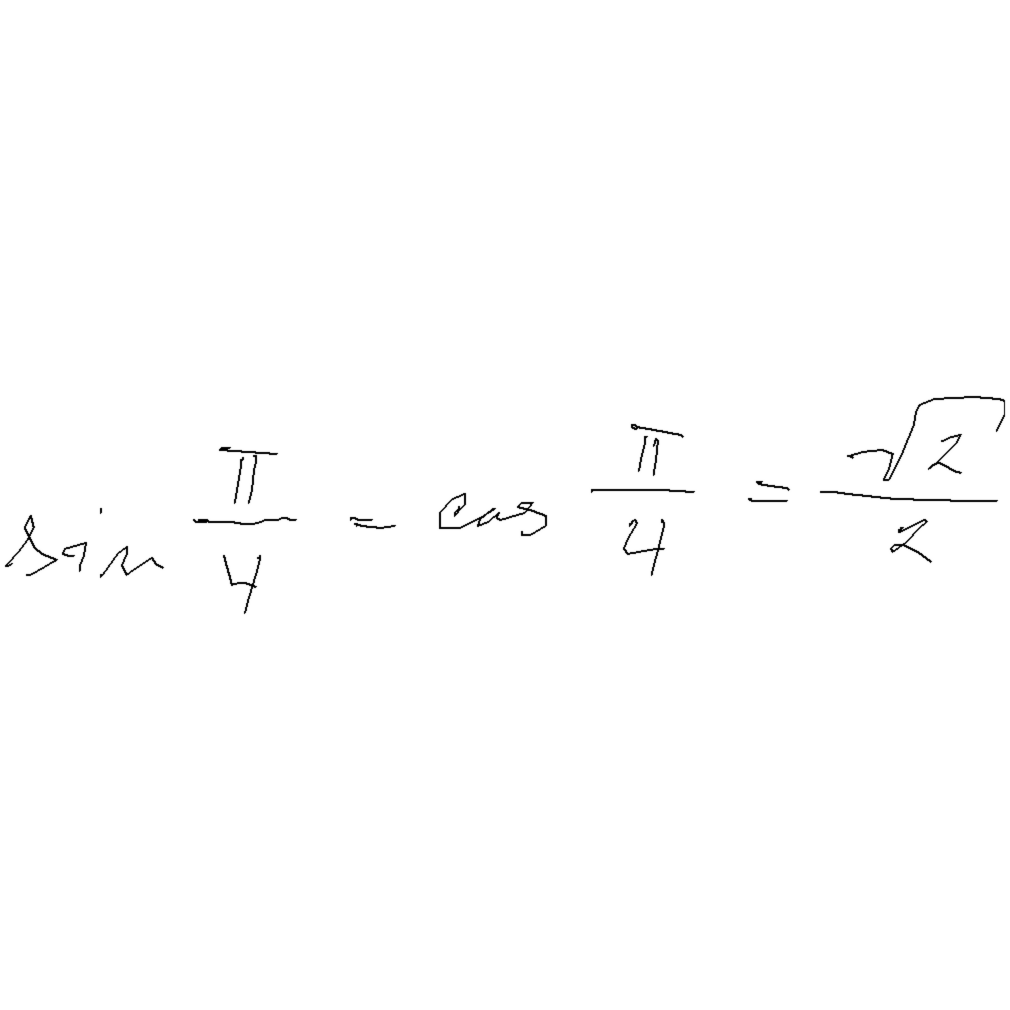 sin π/4 = cos π/4 = √2/2